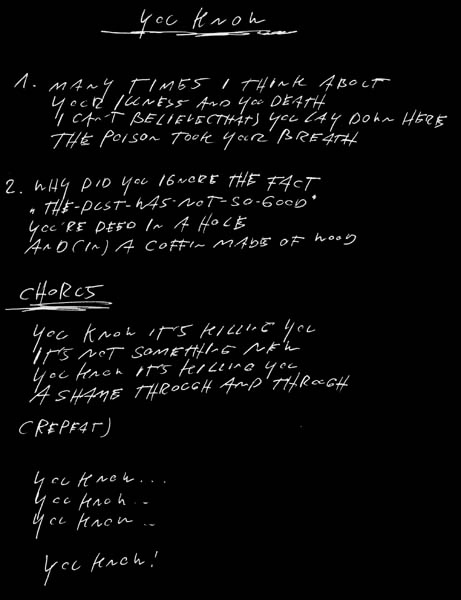 YOU KNOW
1. MANY TIMES I THINK ABOUT
YOUR ILLNESS AND YOU DEATH
I CAN'T BELIEVE THATS YOU LAY DOWN HERE
THE POISON TOOK YOUR BREATH
2. WHY DID YOU IGNORE THE FACT
"THE-DUST-WAS-NOT-SO-GOOD"
YOU'RE DEED IN A HOLE
AND (IN) A COFFIN MADE OF WOOD
CHORUS
YOU KNOW IT'S KILLING YOU
IT'S NOT SOMETHING NEW
YOU KNOW IT'S KILLING YOU
A SHAME THROUGH AND THROUGH
(REPEAT)
YOU KNOW...
YOU KNOW..
YOU KNOW..
YOU KNOW!